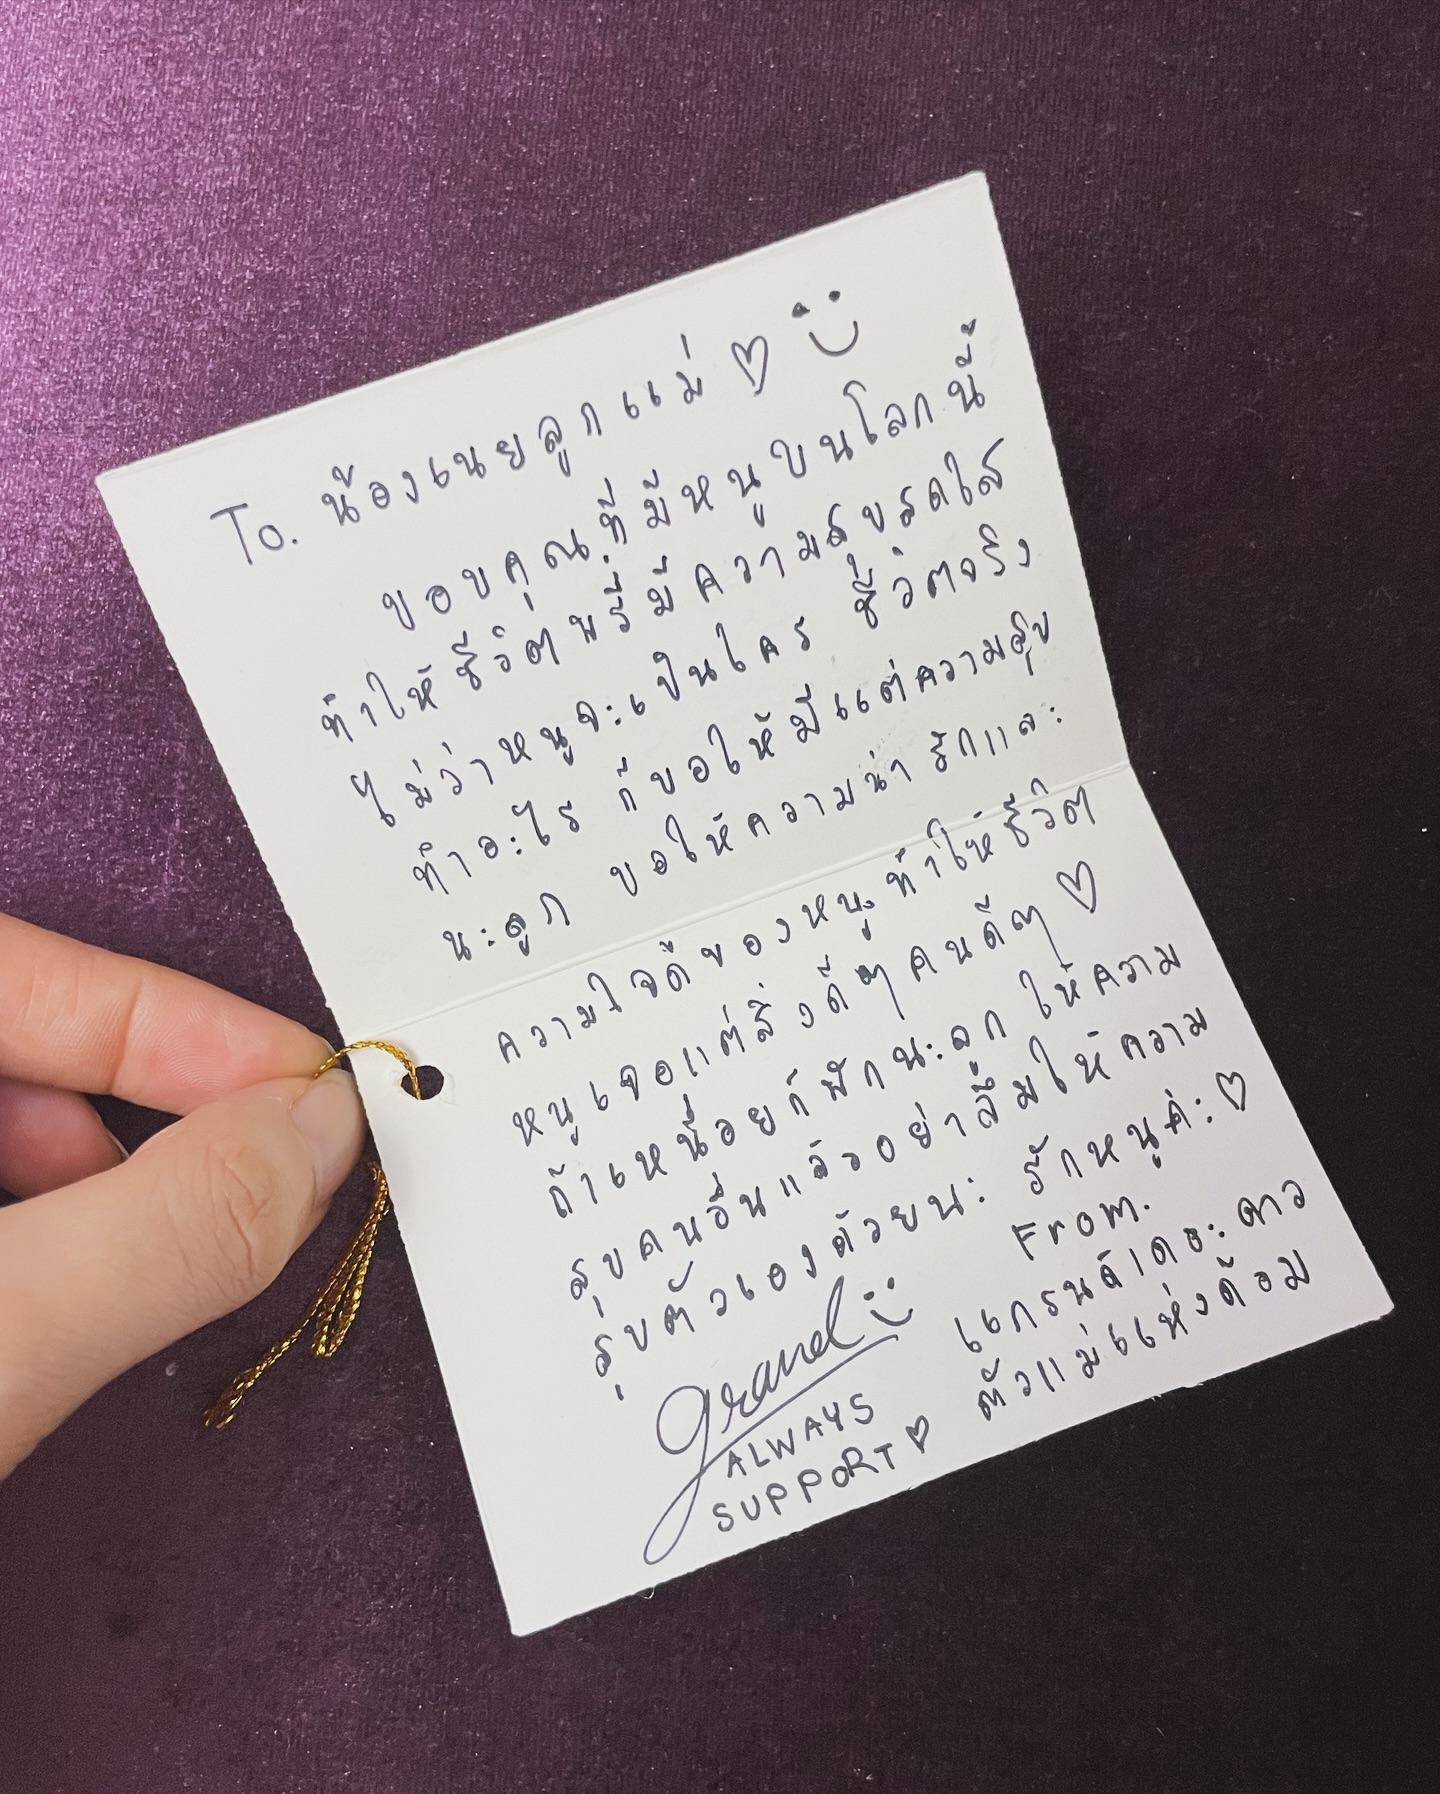 To. น้องเนยลูกแม่ ♡
ขอบคุณที่มีหนูบนโลกนี้
ทำให้ชีวิตพรี่มีความสุขสดใส
ไม่ว่าหนูจะเป็นใคร ชีวิตจริง
ทำอะไร ก็ขอให้มีแต่ความสุข
นะลูก ขอให้ความน่ารักและ
ความใจดีของหนู ทำให้ชีวิต
หนูเจอแต่สิ่งดีๆ คนดีๆ ♡
ถ้าเหนื่อยก็พักนะลูก ให้ความ
สุขคนอื่นแล้วอย่าลืมให้ความ
สุขตัวเองด้วยนะ รักหนูค่ะ ♡
From.
แกรนด์เดอะดาว
ตัวแม่แห่งด้อม
grand
ALWAYS
SUPPORT ♡